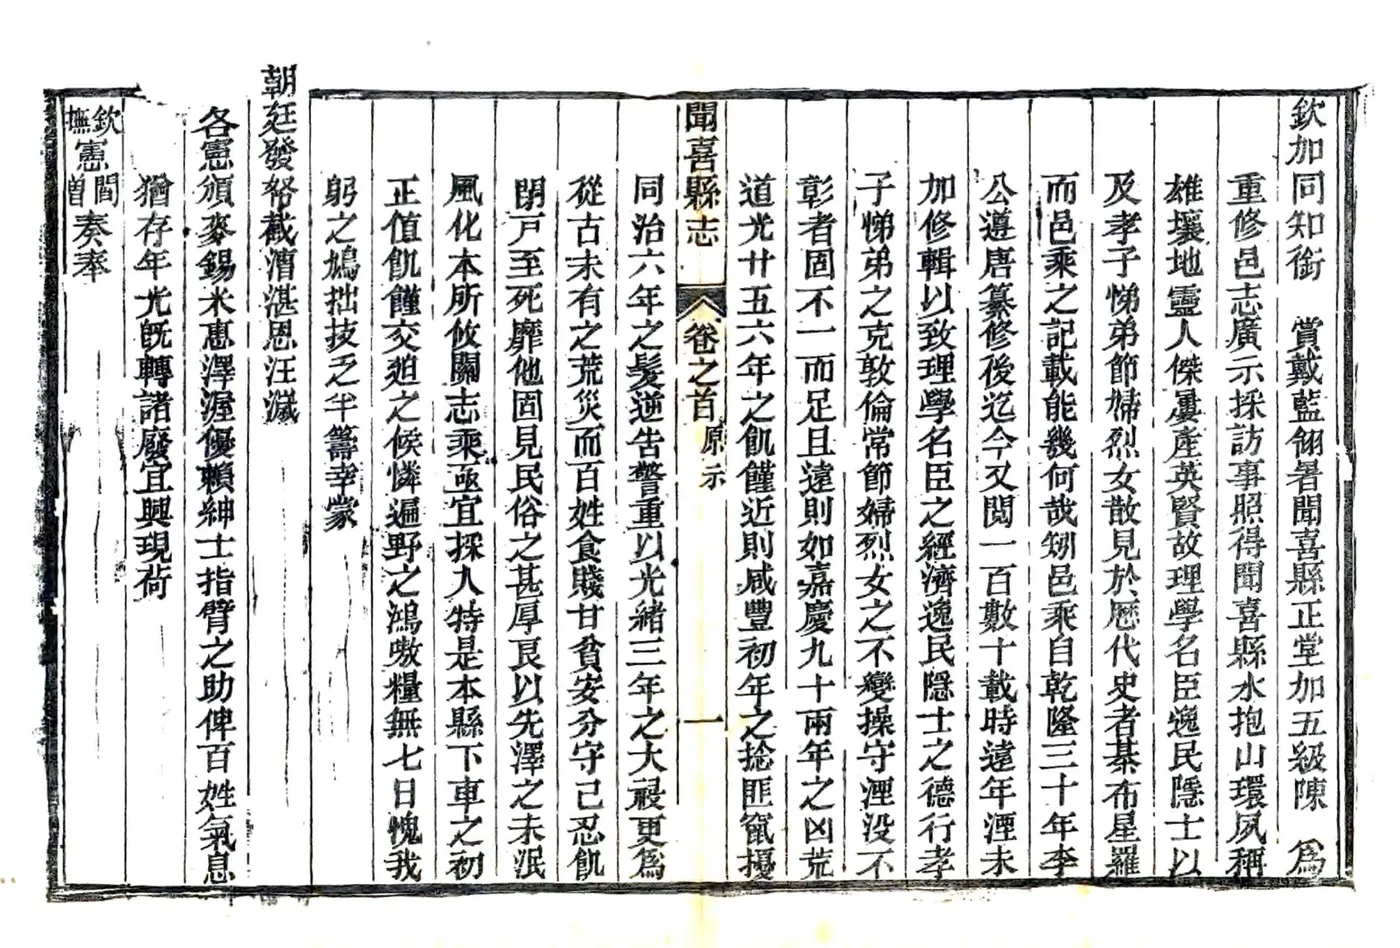 欽加同知銜　賞戴藍翎署聞喜縣正堂加五級陳　爲
重修邑志廣示採訪事照得聞喜縣水抱山環夙稱
雄壤地靈人傑屢產英賢故理學名臣逸民隱士以
及孝子悌弟節婦烈女散見於歷代史者棊布星羅
而邑乘之記載能幾何哉矧邑乘自乾隆三十年李
公遵唐纂修後迄今又閱一百數十載時遠年湮未
加修輯以致理學名臣之經濟逸民隱士之德行孝
子悌弟之克敦倫常節婦烈女之不變操守湮没不
彰者固不一而足且遠則如嘉慶九十兩年之凶荒
道光廿五六年之飢饉近則咸豐初年之捻匪竄擾
聞喜縣志　卷之首　原示　一
同治六年之髮逆告警重以光緒三年之大祲更爲
從古未有之荒災而百姓食賤甘貧安分守己忍飢
閉戸至死靡他固見民俗之甚厚良以先澤之未泯
風化本所攸關志乘亟宜採入特是本縣下車之初
正值飢饉交廹之候憐遍野之鴻嗷糧無七日愧我
躬之鳩拙技乏半籌幸蒙
朝廷發帑截漕湛恩汪濊
各憲頒麥錫米惠澤渥優賴紳士指臂之助俾百姓氣息
猶存年光旣轉諸廢宜興現荷
欽憲閻
撫憲曾奏奉